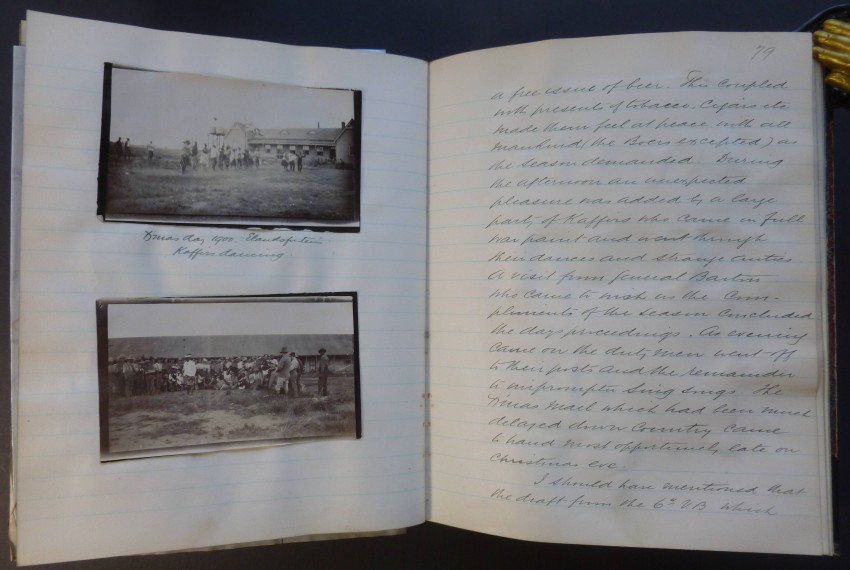 Xmas day 1900 Elandsfontein
Kaffirs dancing
79
a free issue of beer. This coupled
with presents of tobacco, Cigars etc
made them feel at peace with all
mankind (the Boers excepted) as
the season demanded. During
the afternoon an unexpected
pleasure was added by a large
party of Kaffirs who came in full
war paint and went through
their dances and strange antics.
A visit from General Barton
who came to wish us the Com-
pliments of the season concluded
the days proceedings. As evening
came on the duty men went off
to their posts and the remainder
to impromptu sing songs. The
Xmas mail which had been much
delayed down Country came
to hand most opportunely late on
Christmas eve.
I should have mentioned that
the draft from the 6th V.B. which